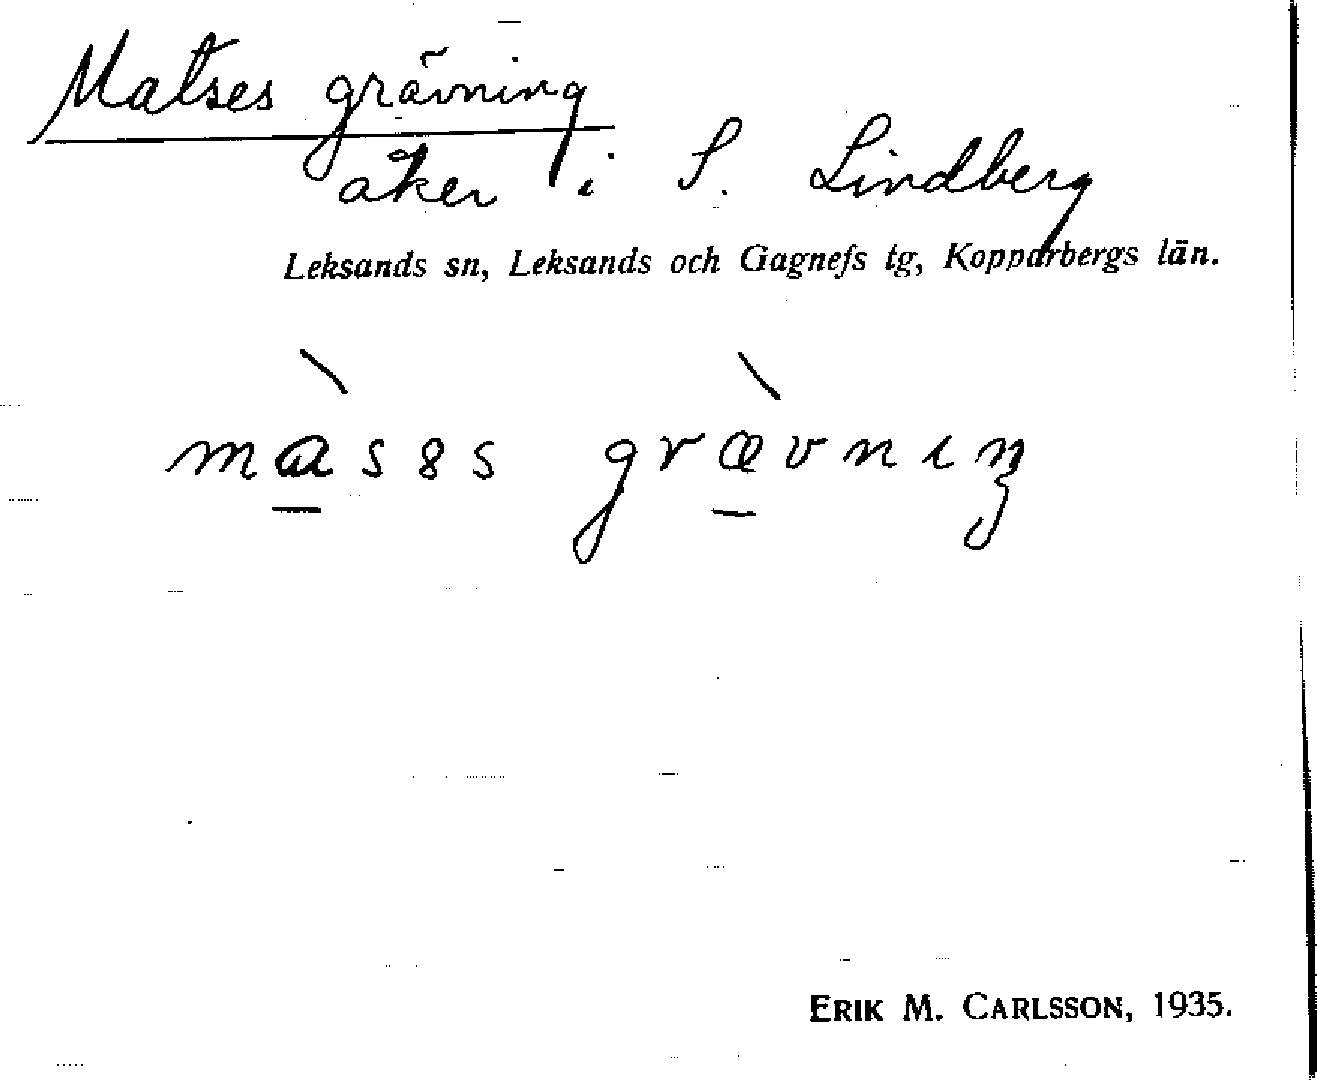 Matses grävning
åker i S. Lindberg
Leksands sn, Leksands och Gagnefs tg, Kopparbergs län.
màsɞs grævnıŋ
ERIK M. CARLSSON, 1935.